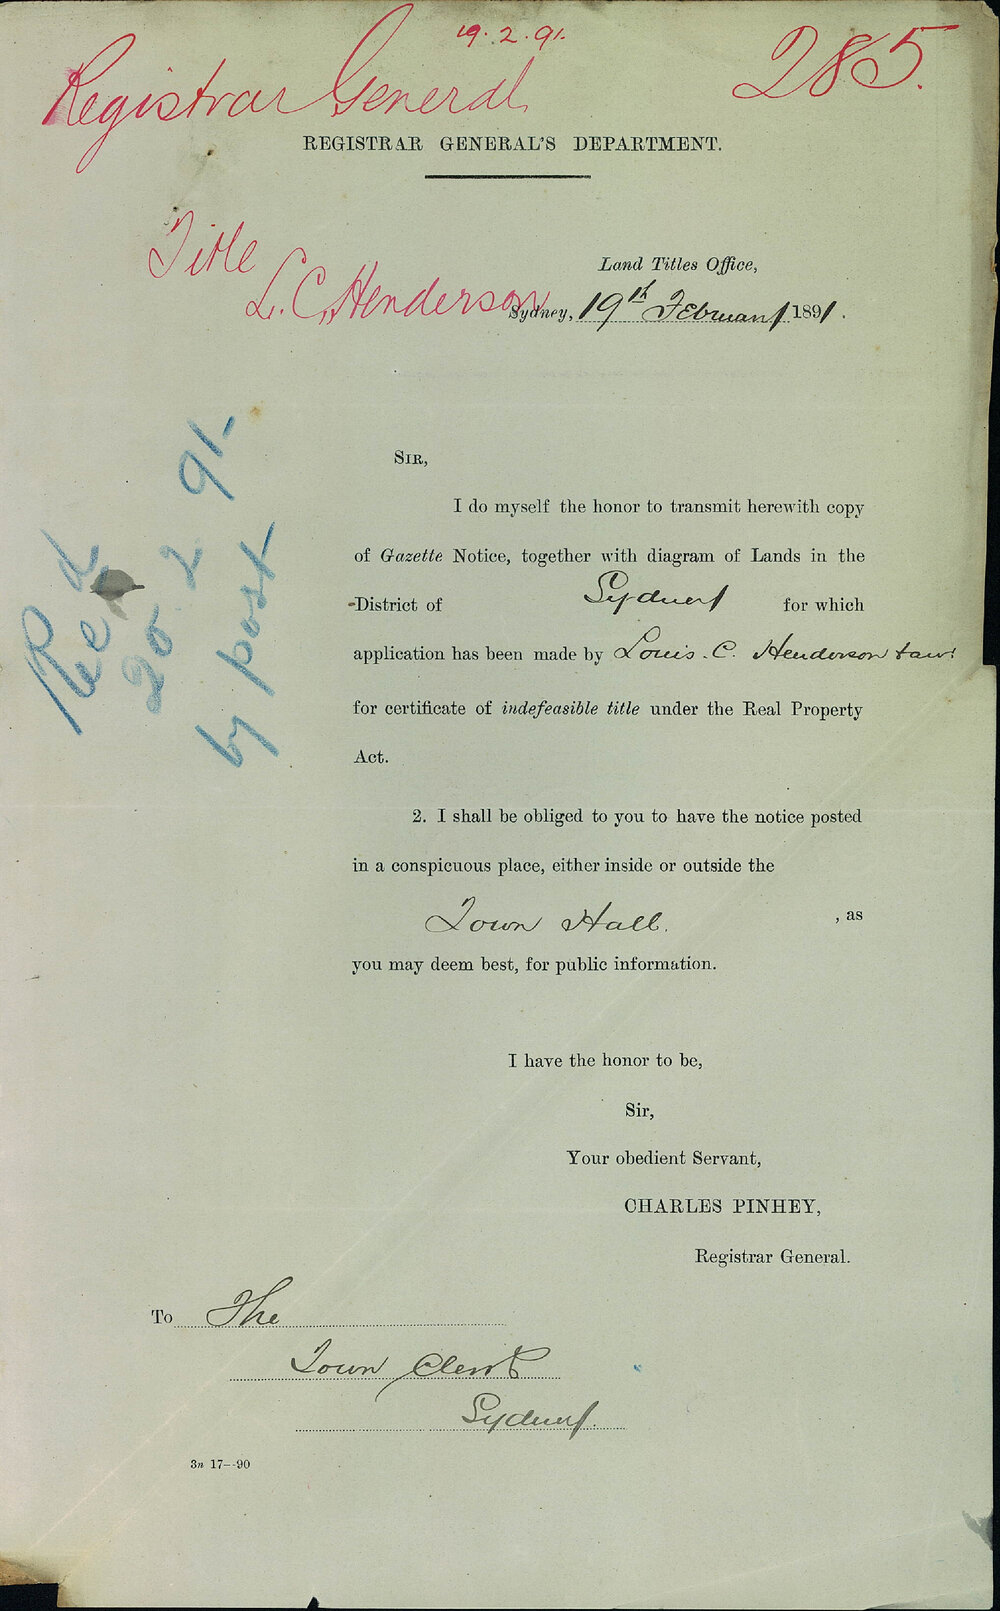 19.2.91.
285.
Registrar General
REGISTRAR GENERAL'S DEPARTMENT.
Title
L. C. Henderson
Land Titles Office,
Sydney, 19th February 1891.
Recd
20 2 91
by post
SIR,
I do myself the honor to transmit herewith copy
of Gazette Notice, together with diagram of Lands in the
District of Sydney for which
application has been made by Louis. C. Henderson
for certificate of indefeasible title under the Real Property
Act.
2. I shall be obliged to you to have the notice posted
in a conspicuous place, either inside or outside the
Town Hall. , as
you may deem best, for public information.
I have the honor to be,
Sir,
Your obedient Servant,
CHARLES PINHEY,
Registrar General.
To The
Town Clerk
Sydney.
3n 17--90